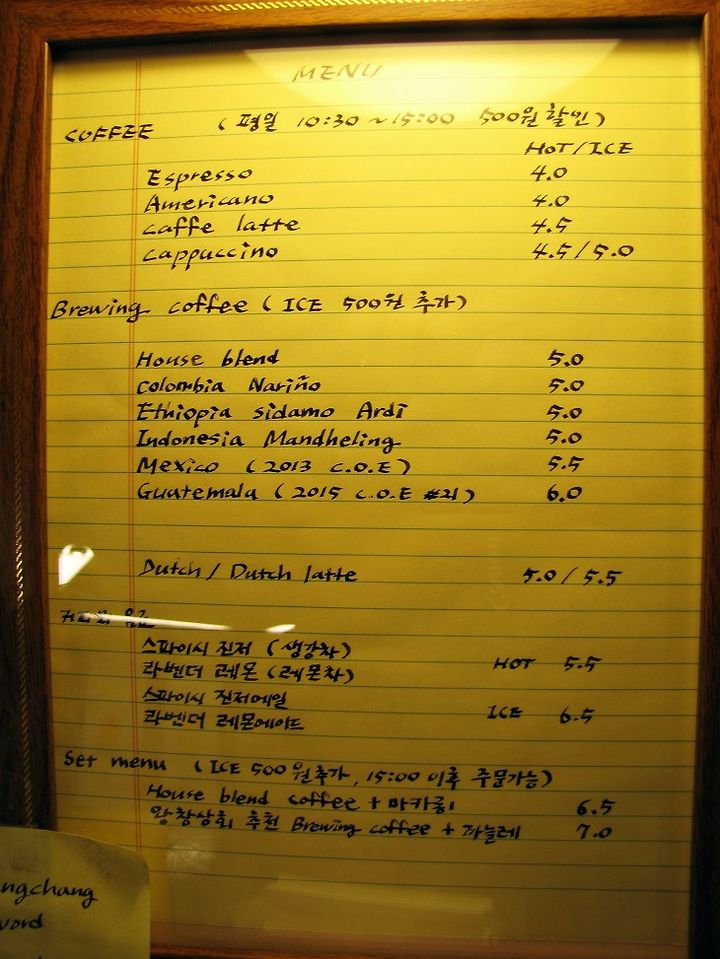 MENU
COFFEE (평일 10:30 ~ 15:00 500원 할인)
HOT/ICE
Espresso 4.0
Americano 4.0
caffe latte 4.5
cappuccino 4.5/5.0
Brewing coffee (ICE 500원 추가)
House blend 5.0
colombia Nariño 5.0
Ethiopia sidamo Ardi 5.0
Indonesia Mandheling 5.0
Mexico (2013 C.O.E) 5.5
Guatemala (2015 C.O.E #21) 6.0
Dutch / Dutch latte 5.0 / 5.5
커피외 음료
스파이시 진저 (생강차)
라벤더 레몬 (레몬차) HOT 5.5
스파이시 진저에일
라벤더 레몬에이드 ICE 6.5
Set menu (ICE 500원 추가, 15:00 이후 주문가능)
House blend coffee + 마카롱1 6.5
왕창상회 추천 Brewing coffee + 까눌레 7.0
ngchang
word